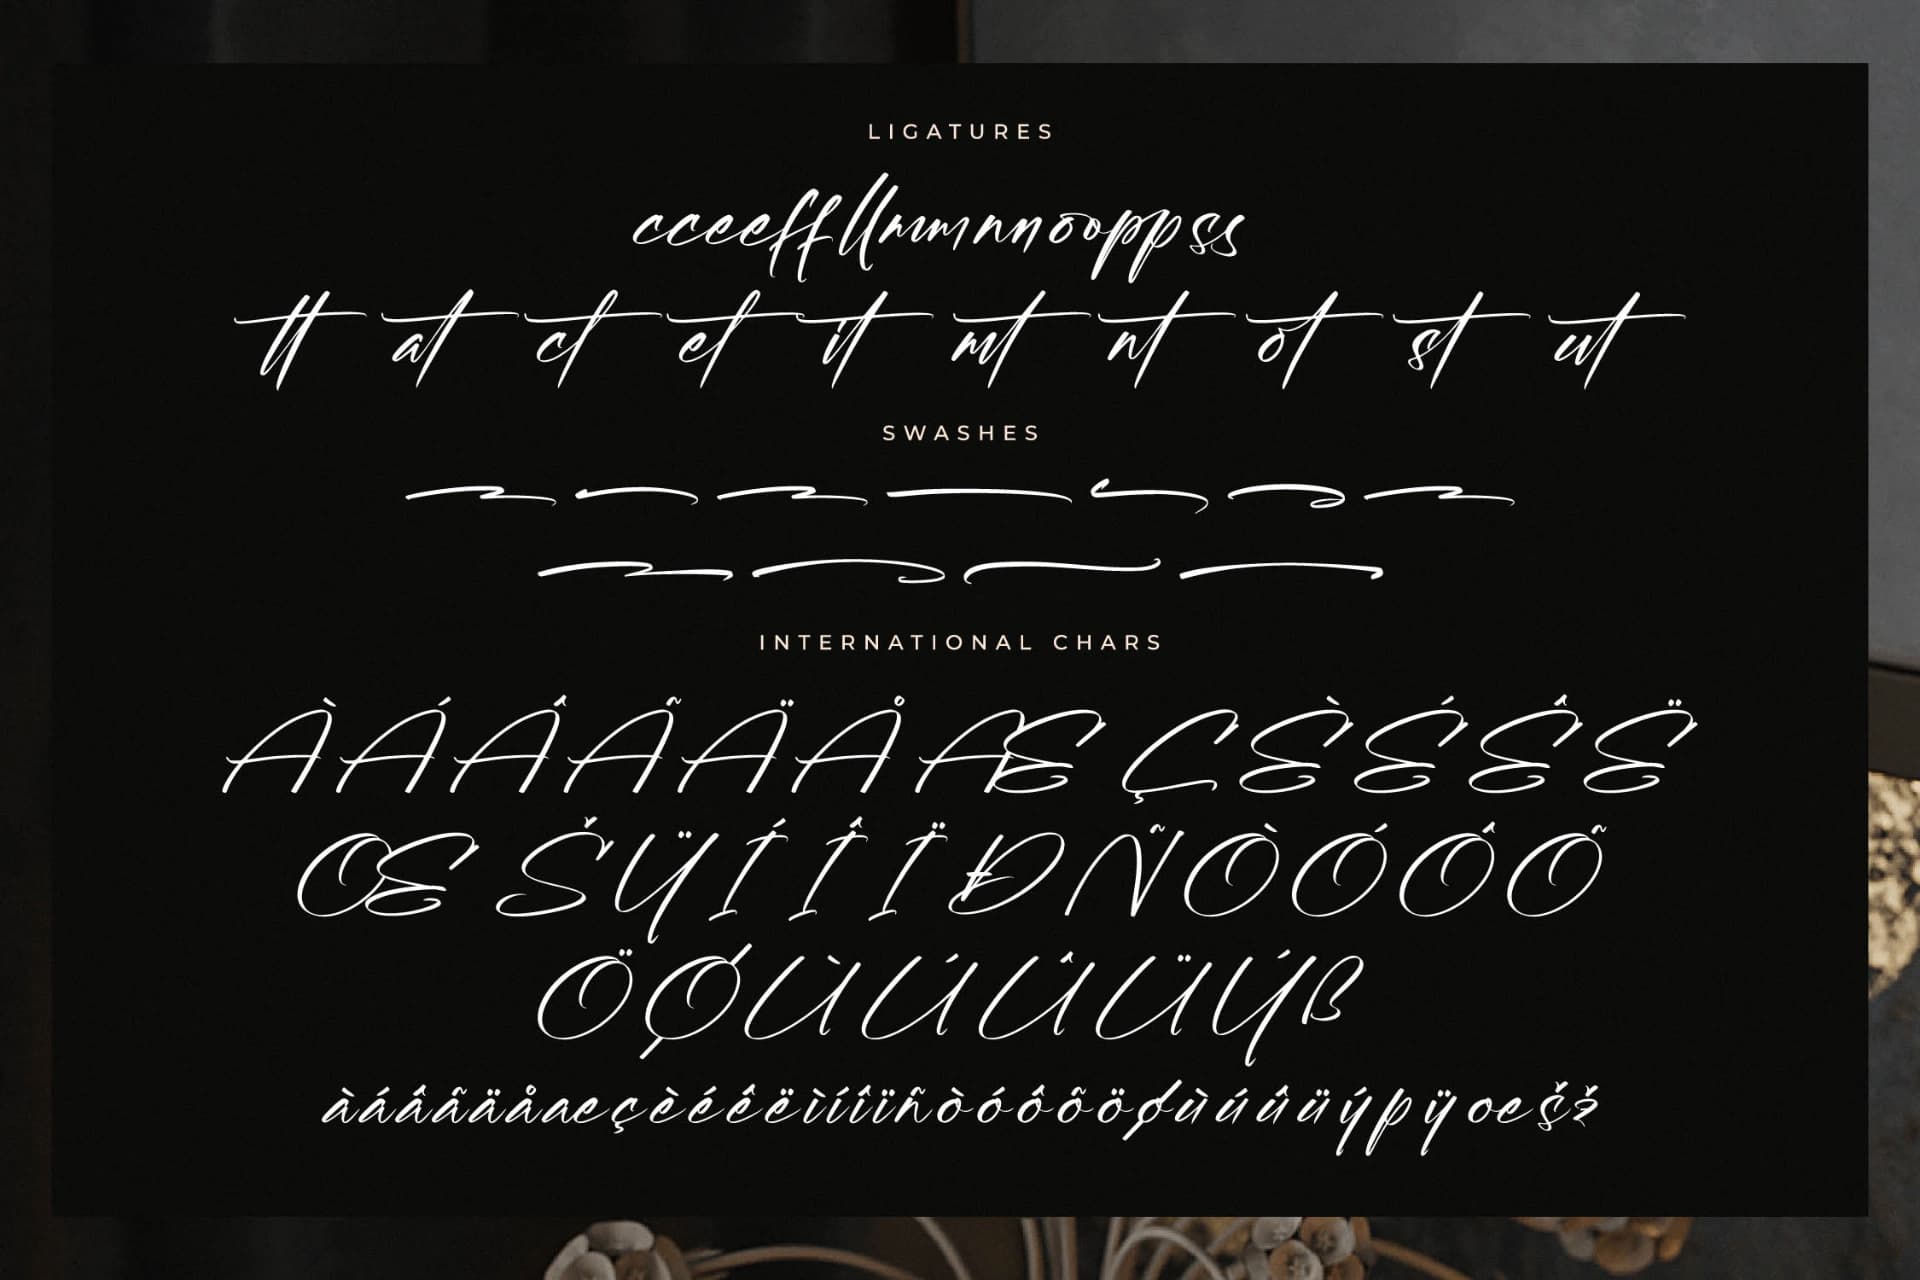 LIGATURES
cceeffllmmnnooppss
tt at ct et it mt nt ot st ut
SWASHES
INTERNATIONAL CHARS
ÀÁÂÃÄÅÆÇÈÉÊË
ŒŠŸÍÎÏÐÑÒÓÔÕ
ÖØÙÚÛÜÝß
àáâãäåæçèéêëìíîïñòóôõöøùúûüýþÿœšž